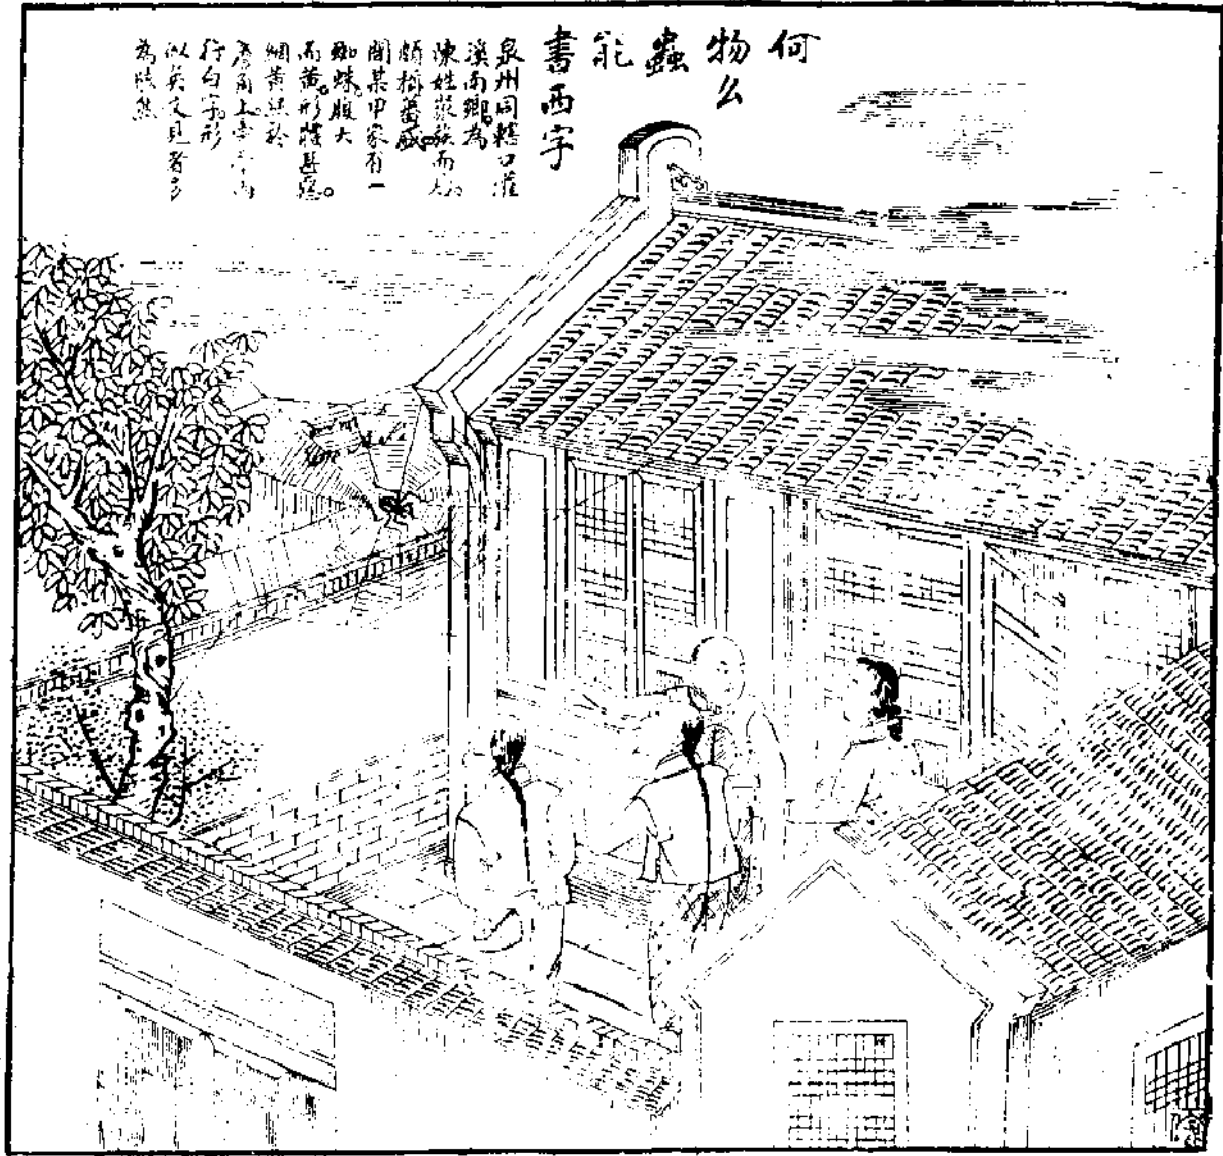 何
物么
蟲
能
書西字
泉州同轄口灌
溪南鄉。為
陳姓聚族而居。
頗稱蕃盛。
聞某甲家有一
蜘蛛。腹大
而黃。形狀甚惡。
網黃絲於
簷角上。
行白字。形
似英文見者多
為駭然